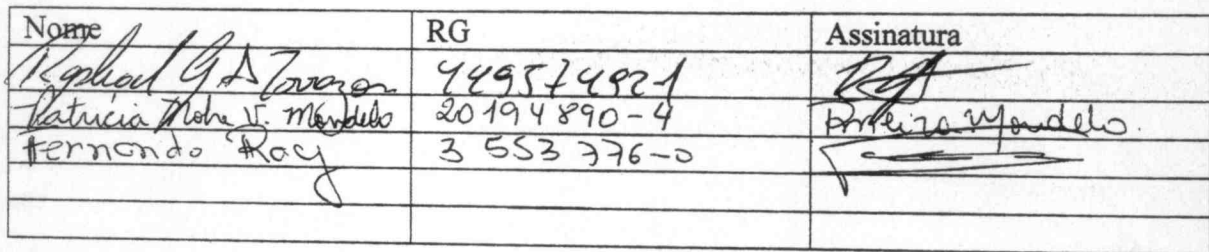 Nome RG Assinatura
Raphael G A 449574921
Patricia Mohr V. Mondelo 20194890-4 Mondelo.
Fernando Ray 3 553 776-0